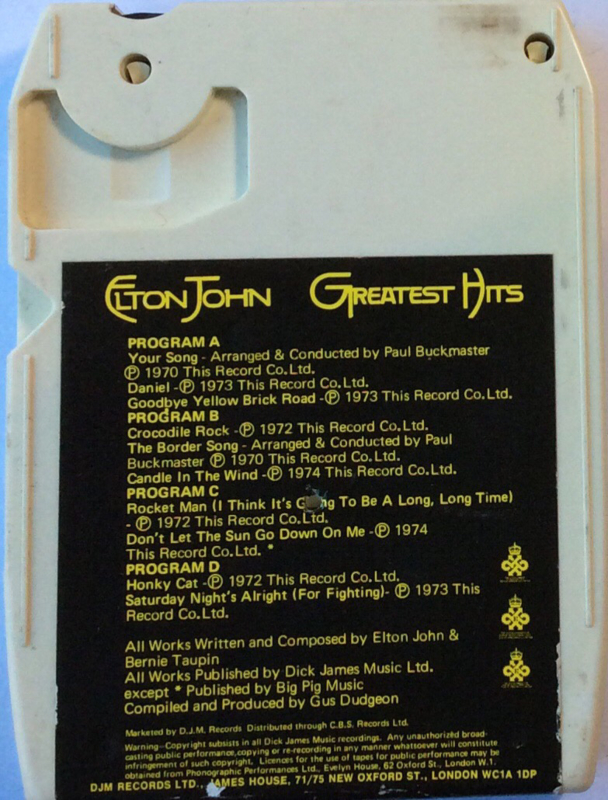 ELTON JOHN GREATEST HITS
PROGRAM A
Your Song - Arranged & Conducted by Paul Buckmaster
Ⓟ 1970 This Record Co. Ltd.
Daniel - Ⓟ 1973 This Record Co. Ltd.
Goodbye Yellow Brick Road - Ⓟ 1973 This Record Co. Ltd.
PROGRAM B
Crocodile Rock - Ⓟ 1972 This Record Co. Ltd.
The Border Song - Arranged & Conducted by Paul
Buckmaster Ⓟ 1970 This Record Co. Ltd.
Candle In The Wind - Ⓟ 1974 This Record Co. Ltd.
PROGRAM C
Rocket Man (I Think It's Going To Be A Long, Long Time)
- Ⓟ 1972 This Record Co. Ltd.
Don't Let The Sun Go Down On Me - Ⓟ 1974
This Record Co. Ltd. *
PROGRAM D
Honky Cat - Ⓟ 1972 This Record Co. Ltd.
Saturday Night's Alright (For Fighting) - Ⓟ 1973 This
Record Co. Ltd.
All Works Written and Composed by Elton John &
Bernie Taupin
All Works Published by Dick James Music Ltd.
except * Published by Big Pig Music
Compiled and Produced by Gus Dudgeon
Marketed by D.J.M. Records Distributed through C.B.S. Records Ltd.
Warning—Copyright subsists in all Dick James Music recordings. Any unauthorized broad-
casting public performance, copying or re-recording in any manner whatsoever will constitute
infringement of such copyright. Licences for the use of tapes for public performance may be
obtained from Phonographic Performances Ltd., Evelyn House, 62 Oxford St., London W.1.
DJM RECORDS LTD., JAMES HOUSE, 71/75 NEW OXFORD ST., LONDON WC1A 1DP